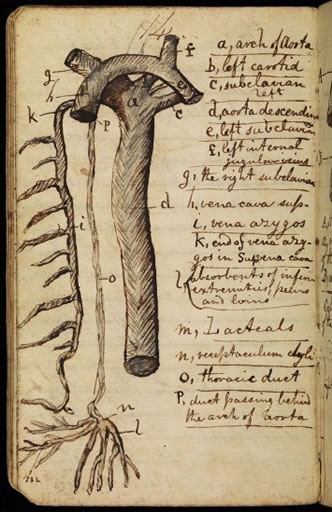 14
f
g
h
e
a
c
k
p
d
i
o
n
l
m
a, arch of Aorta
b, left carotid
c, subclavian
left
d, aorta descendin
e, left subclavian
f, left internal
jugular veins
g, the right subclavian
h, vena cava sup.
i, vena azygos
k, end of vena azy-
gos in Sup vena cava
l, absorbents of inferior
extremities, pelvis
and loins
m, Lacteals
n, receptaculum chyli
o, thoracic duct
P, duct passing behind
the arch of aorta